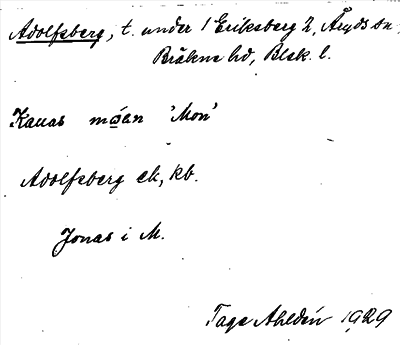 Adolfsberg, t. under 1 Eriksberg 2, Åryds sn,
Bräkne hd, Blek. l.
Kallas móen 'Mon'
Adolfsberg ek, kb.
Jonas i M.
Tage Ahldén 1929